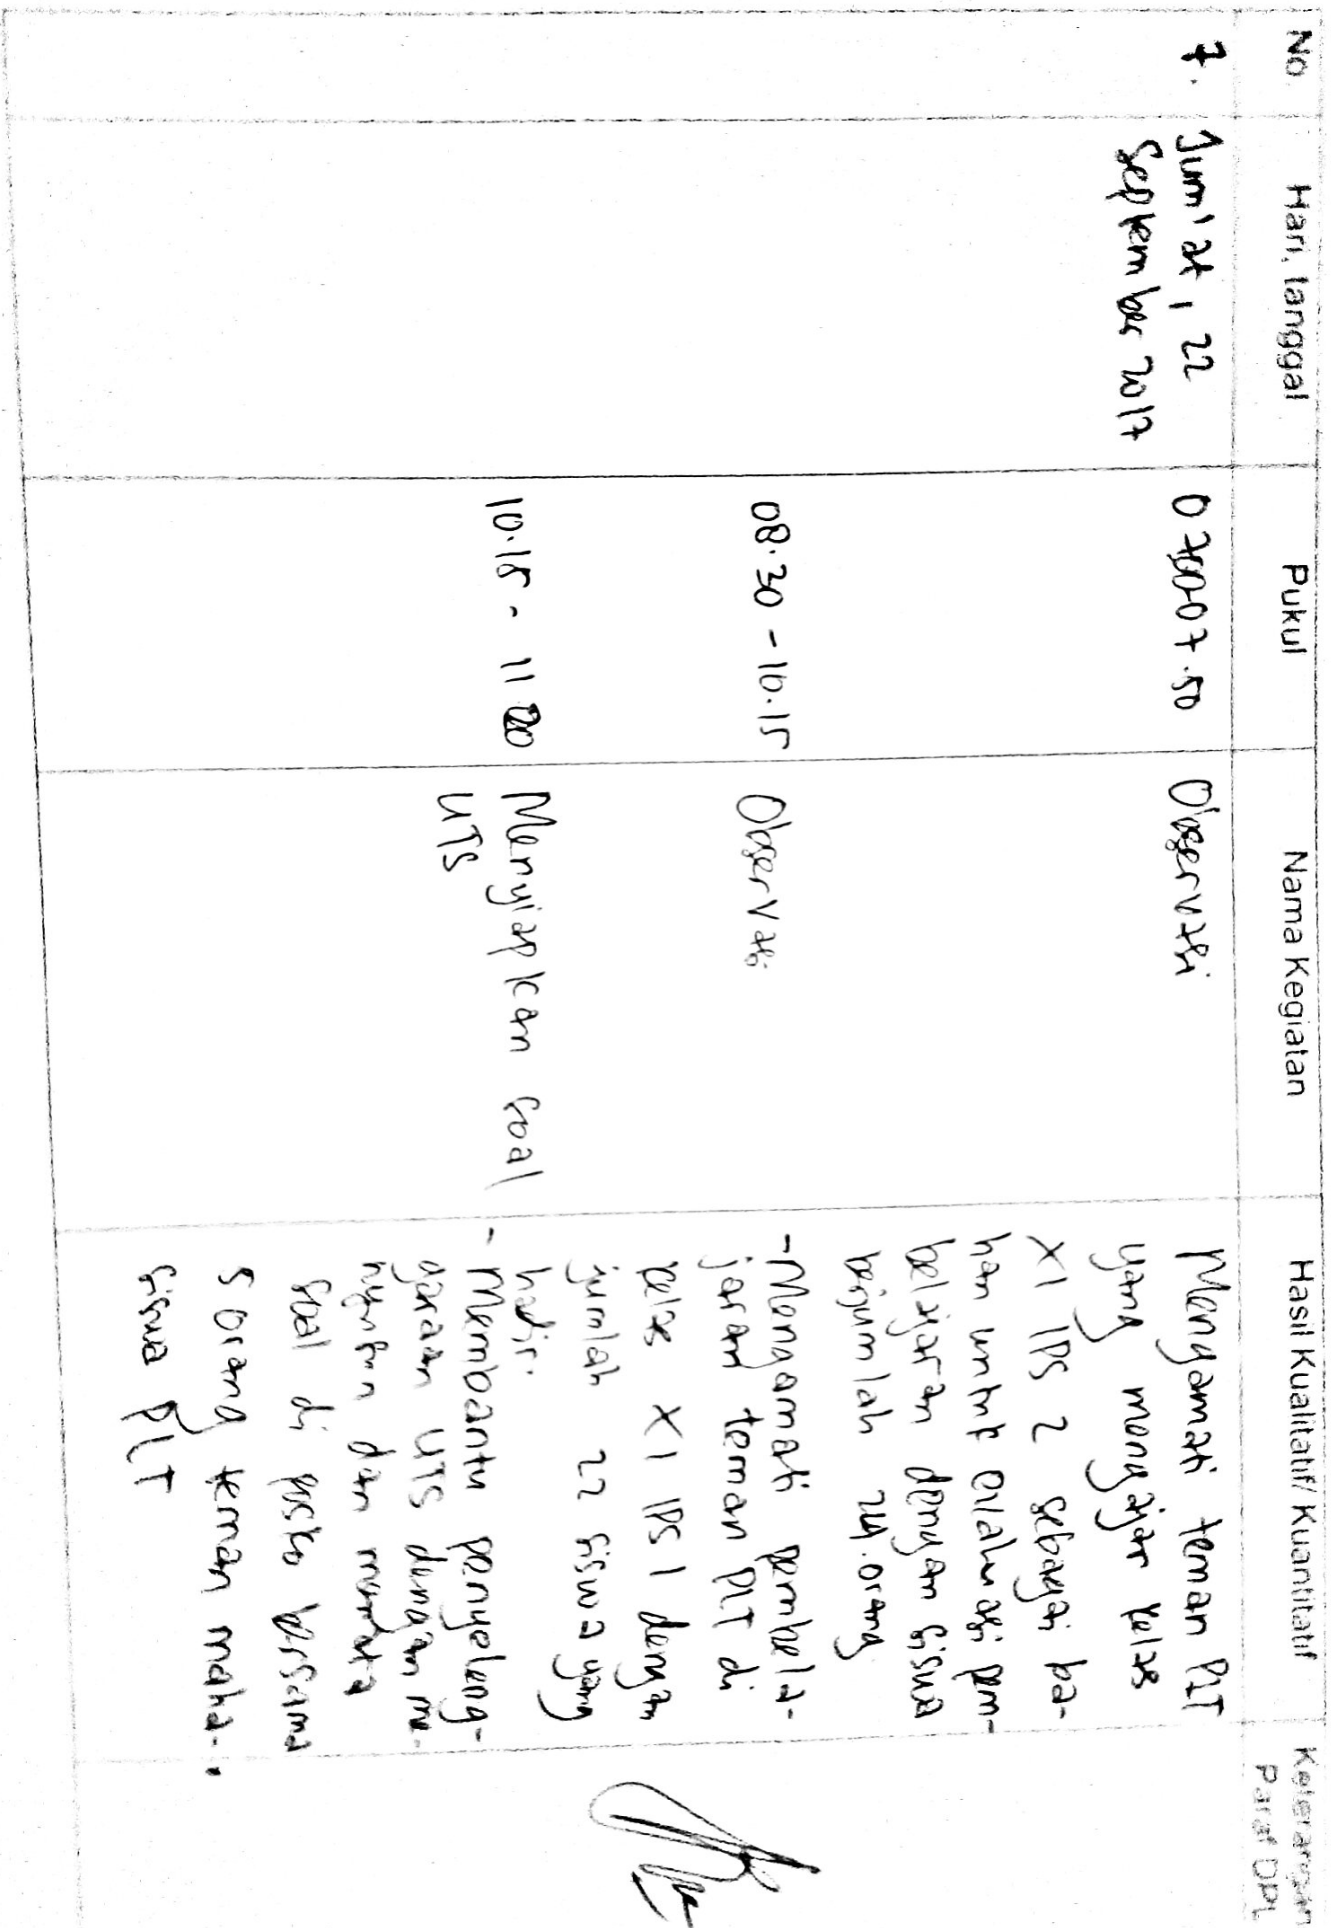 No.	Hari, tanggal	Pukul	Nama Kegiatan	Hasil Kualitatif/ Kuantitatif	Keterangan
Paraf DPL
7.	Jum'at, 22	07.50	Observasi	Mengamati teman PLT
September 2017
yang mengajar kelas
XI IPS 2 sebagai ba-
han untuk evaluasi pem-
belajaran dengan siswa
berjumlah 24 orang
08.30 - 10.15	Observasi	- Mengamati pembela-
jaran teman PLT di
kelas XI IPS 1 dengan
jumlah 22 siswa yang
hadir.
10.15 - 11	Menyiapkan soal	- Membantu penyeleng-
UTS
garaan UTS dengan me-
dan menata
soal di posko bersama
5 orang teman maha-
siswa PLT